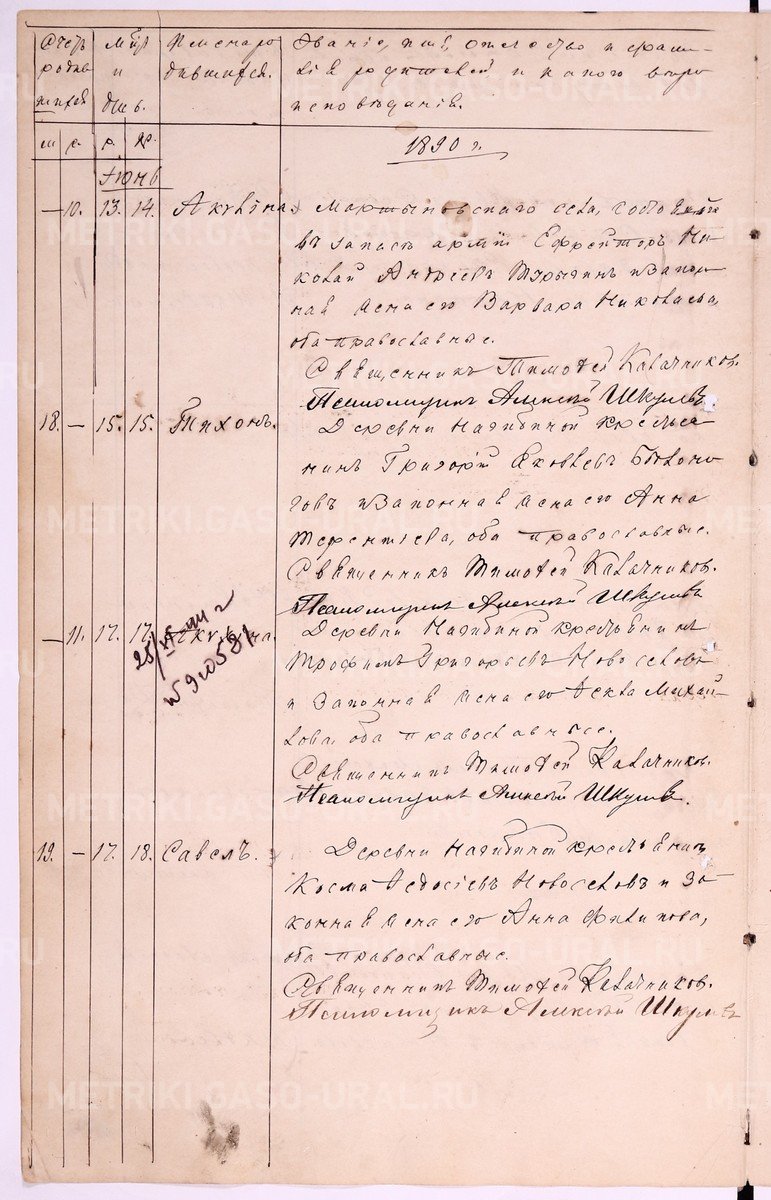 Счетъ родив шихся
Мѣся и день.
Имена ро дившихся.
Званіе, имя, отчество и фами-
лія родителей и какого вѣро
исповѣданія.
м. ж. р. кр.
1890 г.
Іюнь
— 10. 13. 14. Акулина. Мартыновскаго села, состоящій
въ запасѣ арміи Ефрейторъ Ни-
колай Андреевъ и закон-
ная жена его Варвара Николаева,
оба православные.
Священникъ Тимофей Калачниковъ.
Псаломщикъ Алексѣй Шкулевъ
18. — 15. 15. Тихонъ. Деревни Нагибиной крестья
нинъ Григорій Яковлевъ Бѣлоно-
говъ и законная жена его Анна
Терентьева, оба православные.
Священникъ Тимофей Калачниковъ.
Псаломщикъ Алексѣй Шкулевъ
— 11. 17. 17. Акулина. Деревни Нагибиной крестьянинъ
Трофимъ Григорьевъ Новоселовъ
и законная жена его Фекла Михай-
лова, оба православные.
Священникъ Тимофей Калачниковъ.
Псаломщикъ Алексѣй Шкулевъ.
19. — 17. 18. Савелъ. Деревни Нагибиной крестьянинъ
Косма Федосіевъ Новоселовъ и за-
конная жена его Анна Филипова,
оба православные.
Священникъ Тимофей Калачниковъ.
Псаломщикъ Алексѣй Шкулевъ
METRIKI.GASO-URAL.RU